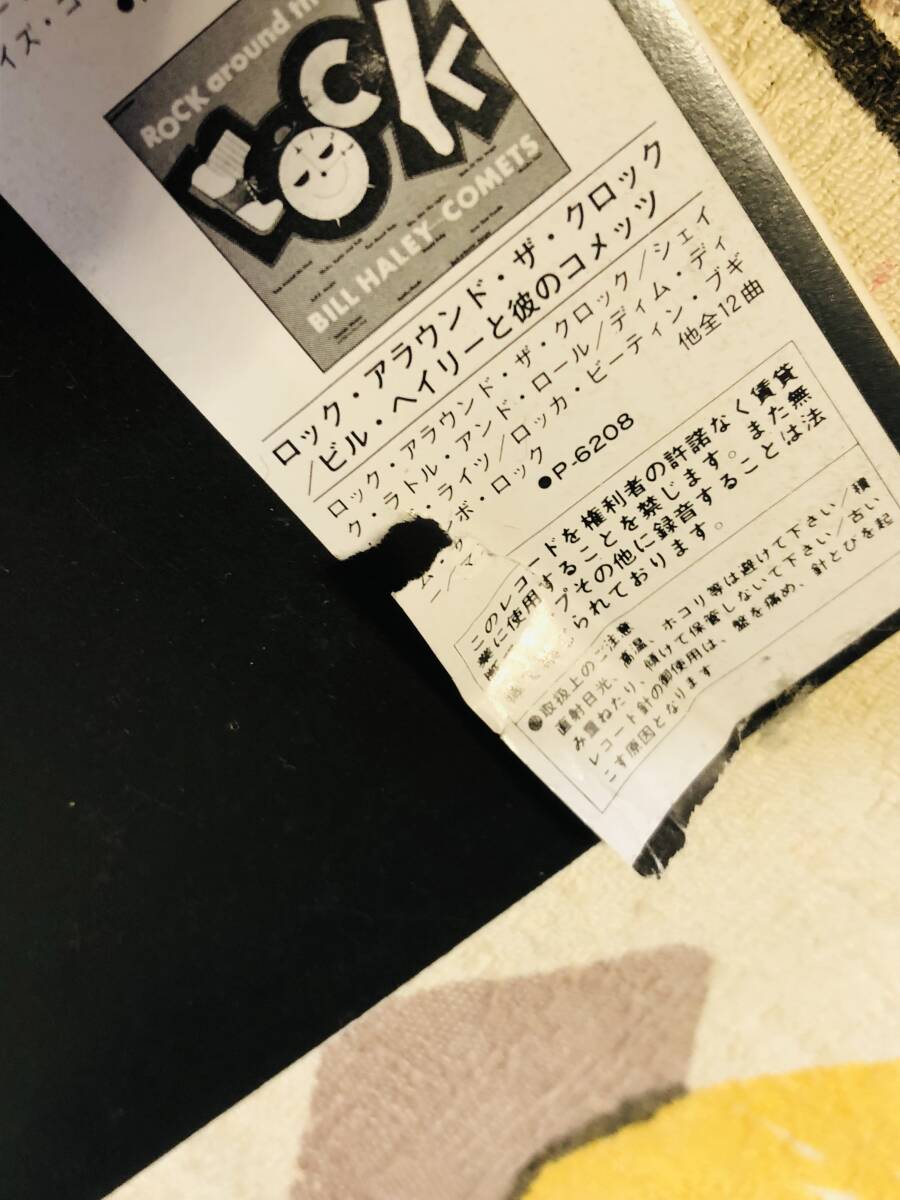 イズ・コ
ROCK around th
ROCK
BILL HALEY COMETS
ロック・アラウンド・ザ・クロック
/ビル・ヘイリーと彼のコメッツ
ロック・アラウンド・ザ・クロック/シェイ
ク・ラトル・アンド・ロール/ディム・ディ
ム・ライツ/ロッカ・ビーティン・ブギ
ンボ・ロック
他全12曲
●P-6208
このレコードを権利者の許諾なく賃貸
業に使用することを禁じます。また無
プその他に録音することは法
られております。
取扱上のご注意
直射日光、高温、ホコリ等は避けて下さい/積
み重ねたり、傾けて保管しないで下さい/古い
レコード針の御使用は、盤を痛め、針とびを起
こす原因となります